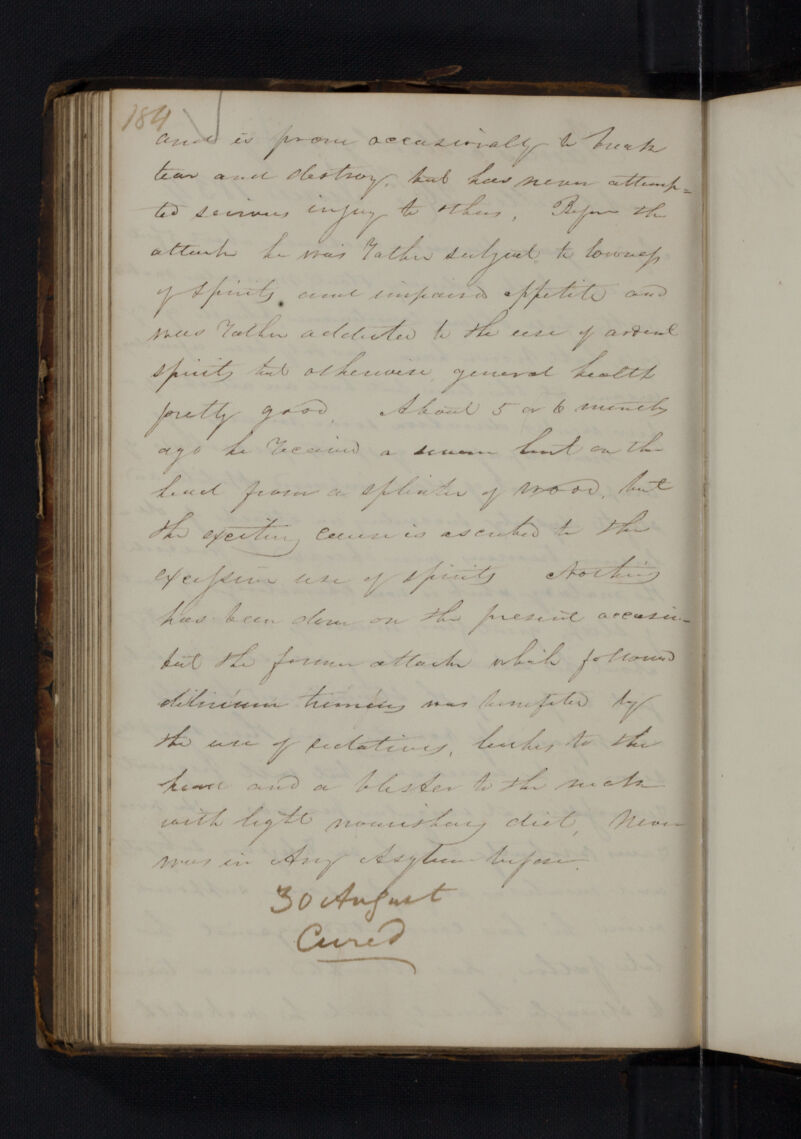 184
and is prone occasionally to break
tear and destroy, but has never attemp=
ted serious injury to others. Before the
attack he was rather subject to lowness
of spirits and impaired appetite and
was rather addicted to the use of ardent
spirits but otherwise general health
pretty good. About 5 or 6 months
ago he received a severe hurt on the
head from a splinter of wood, but
the exciting cause is ascribed to the
excessive use of spirits Nothing
has been done on the present occasion
but the former attack which followed
delirium tremens was benefited by
the use of sedatives, leeches to the
head and a blister to the neck
with light nourishing diet, Never
was in Any Asylum before.
30 August
Cured